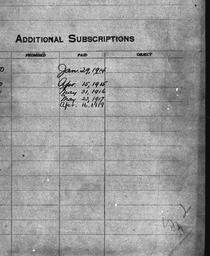 ADDITIONAL SUBSCRIPTIONS
PROMISED PAID OBJECT
Jan. 29, 1914
Apr. 15, 1915
May 31, 1916
May 23, 1917
Apr. 16, 1919